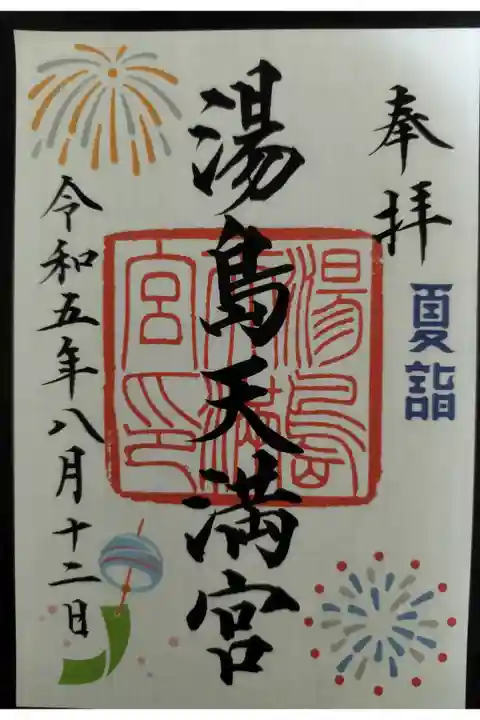 奉拝
夏詣
湯島天満宮
湯島天満宮印
令和五年八月十二日